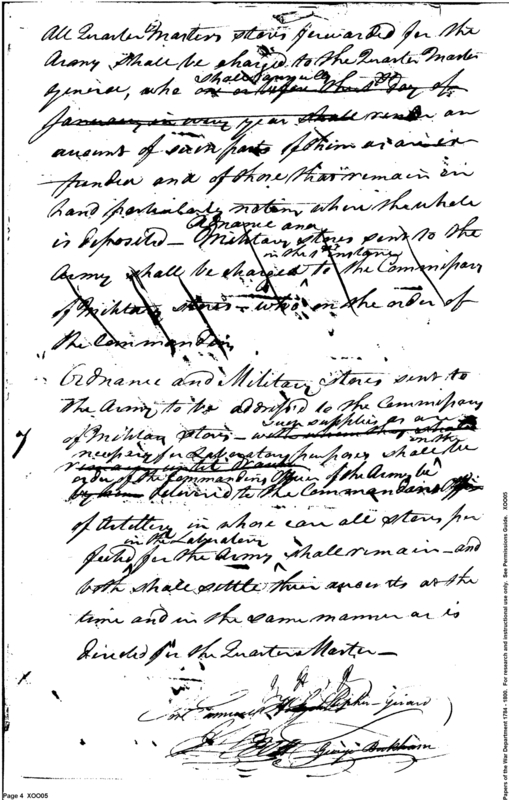 All Quarter Masters stores forwarded for the
Army shall be charged to the Quarter Master
general, who shall annually on or before the 1st day of
January in every year shall render an
account of such parts of them as are ex-
pended and of those that remain on
hand particularly noting where the whole
is deposited — Ordnance and Military stores sent to the
Army shall be charged in the 1st instance to the Commissary
of Military stores — who on the order of
the Commanding
Ordnance and Military stores sent to
the Army to be addressed to the Commissary
of Military stores — such supplies as are
necessary for Laboratory purposes shall
in the
order of the Commanding Officer of the Army be
delivered to the Commandant
of Artillery in whose care all stores per
fected in the Laboratory for the Army shall remain — and
both shall settle their accounts at the
time and in the same manner as is
directed for the Quarter Master —
Stephen Girard
George Buckham
Page 4 XOO05
Papers of the War Department 1784 - 1800. For research and instructional use only. See Permissions Guide. XOO05